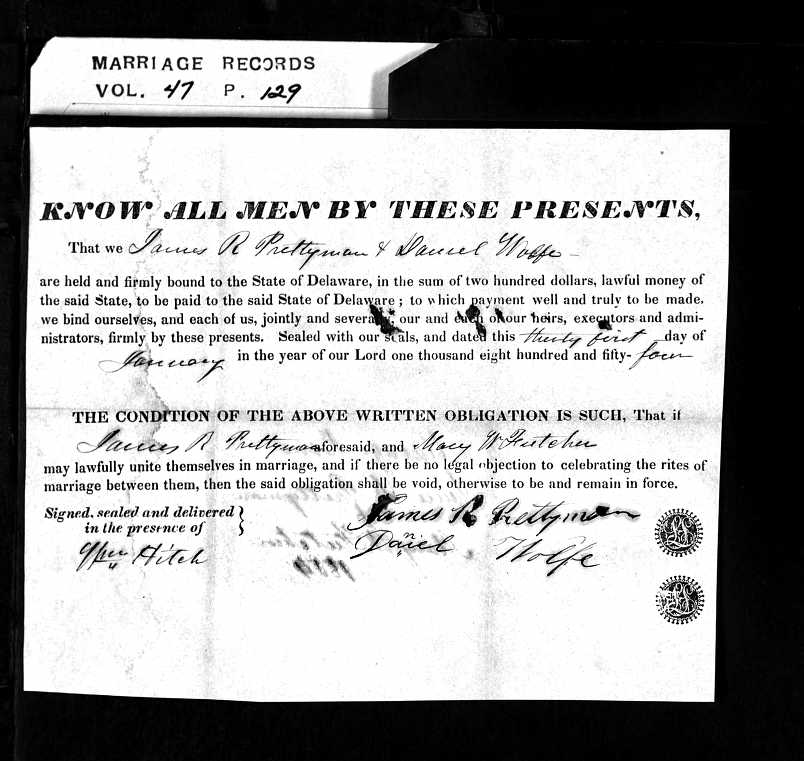 MARRIAGE RECORDS
VOL. 47 P. 129
KNOW ALL MEN BY THESE PRESENTS,
That we James R Prettyman & Daniel Wolfe
are held and firmly bound to the State of Delaware, in the sum of two hundred dollars, lawful money of
the said State, to be paid to the said State of Delaware; to which payment well and truly to be made,
we bind ourselves, and each of us, jointly and severally, our and each of our heirs, executors and admi-
nistrators, firmly by these presents. Sealed with our seals, and dated this thirty first day of
January in the year of our Lord one thousand eight hundred and fifty-four
THE CONDITION OF THE ABOVE WRITTEN OBLIGATION IS SUCH, That if
James R Prettyman aforesaid, and Mary W Futcher
may lawfully unite themselves in marriage, and if there be no legal objection to celebrating the rites of
marriage between them, then the said obligation shall be void, otherwise to be and remain in force.
Signed, sealed and delivered
in the presence of
James R Prettyman
Daniel Wolfe
Wm Hitch